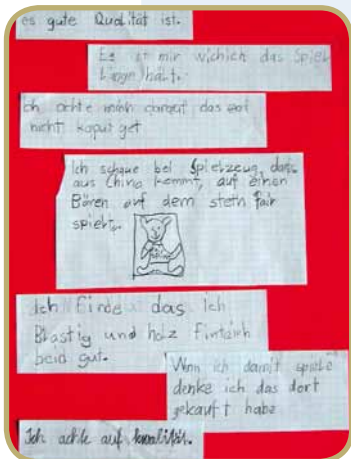 es gute Qualität ist.
Es ist mir wichich das Spiel
lange hält.
Ich achte mich darauf das
nicht kaput get
Ich schaue bei Spielzeug, dass
aus China kommt, auf einen
Bären auf dem steth fair
spielt.
Ich finde das ich
Blastig und holz finde ich
beid gut.
Wenn ich damit spiele
denke ich das dort
gekauft habe
Ich achte auf kwalität.